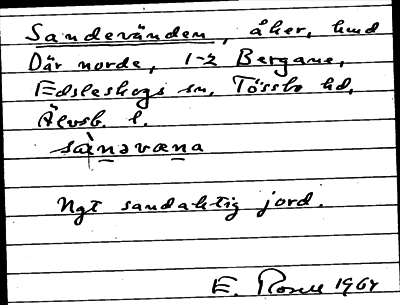 Sandevänden, åker, hmd
Där norde, 1-2 Bergane,
Edsleskogs sn, Tössbo hd,
Älvsb. l.
sànəvæna
Ngt sandaktig jord.
E. 1964